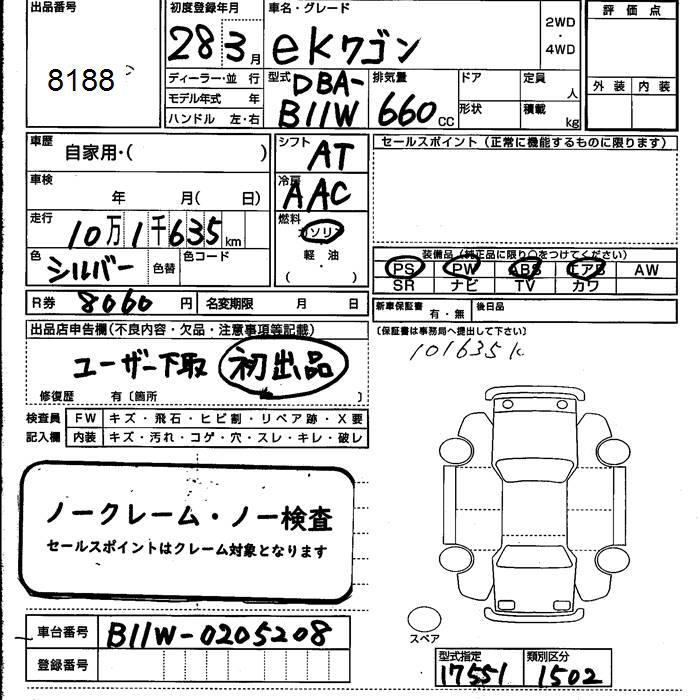 出品番号
8188
初度登録年月
28 3月
車名・グレード
eKワゴン
2WD
・
4WD
評価点
外装 内装
ディーラー・並 行
モデル年式 年
ハンドル 左・右
型式
DBA-
B11W
排気量
660cc
ドア
形状
定員
人
積載
kg
車歴
自家用・( )
車検
年 月( 日)
走行
10万1千635km
色
シルバー
色替
色コード
シフト
AT
冷房
AAC
燃料
ガソリン
軽・油
( )
セールスポイント (正常に機能するものに限ります)
装備品 (純正品に限り○をつけてください)
PS PW ABS エアB AW
SR ナビ TV カワ
R券 8060 円
名変期限 月 日
新車保証書
有・無
後日品
(保証書は事務局へ提出して下さい)
101635k
出品店申告欄(不良内容・欠品・注意事項等記載)
ユーザー下取 初出品
修復歴 有〔箇所 〕
検査員
記入欄
FW キズ・飛石・ヒビ割・リペア跡・X要
内装 キズ・汚れ・コゲ・穴・スレ・キレ・破レ
ノークレーム・ノー検査
セールスポイントはクレーム対象となります
車台番号 B11W-0205208
登録番号
スペア
型式指定
17551
類別区分
1502